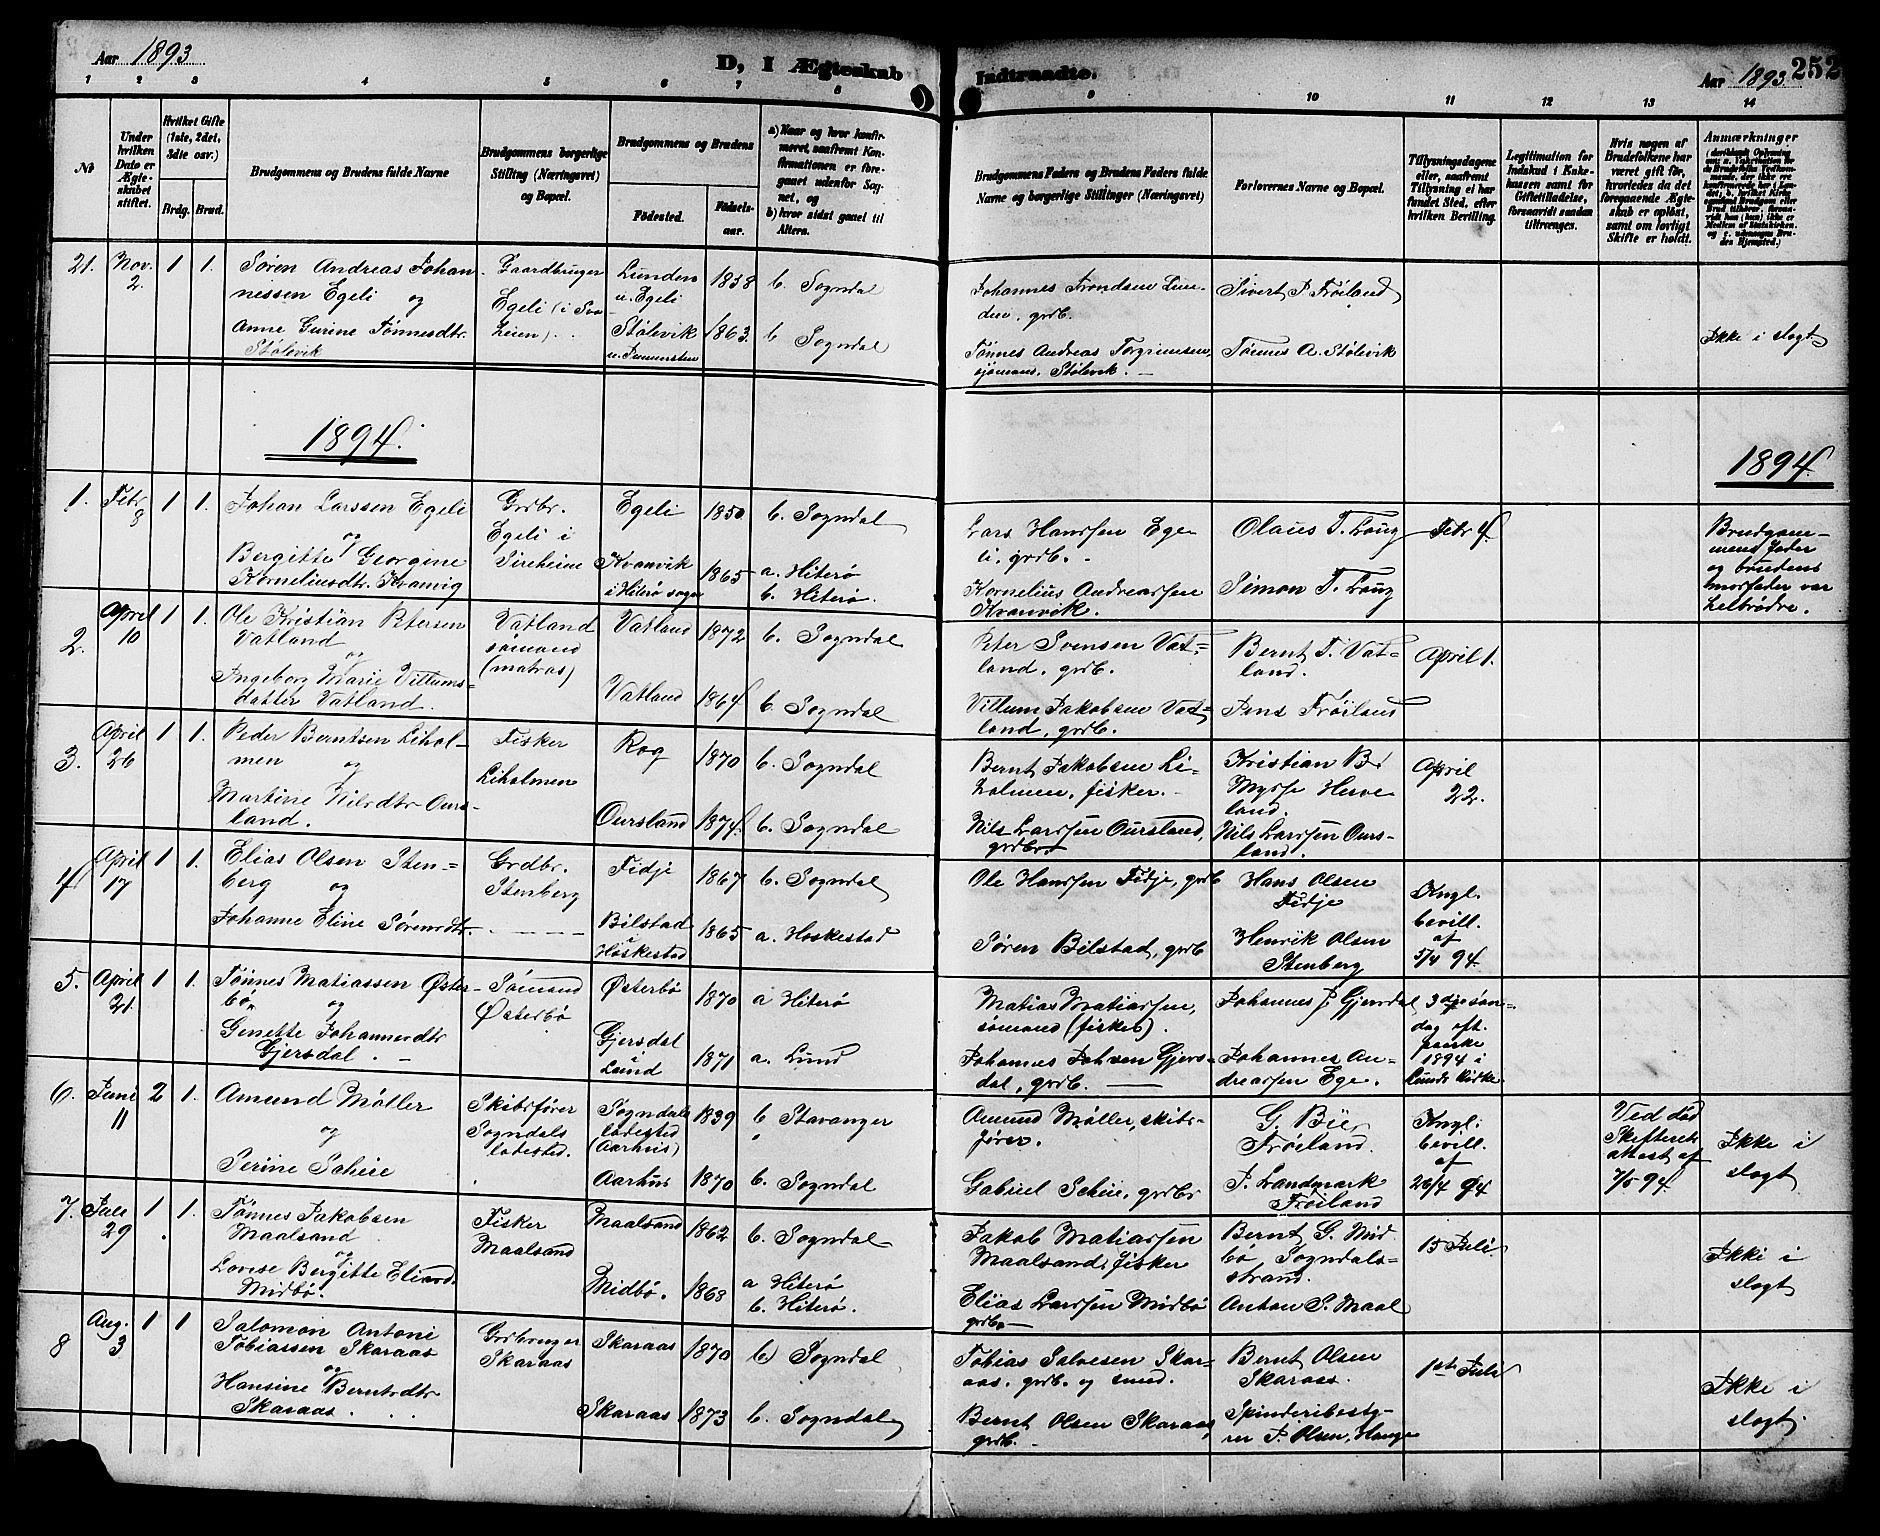 Aar 1893
D, I Ægteskab Indtraadte.
Aar 1893. 252
1 2 3 4 5 6 7 8 9 10 11 12 13 14
No
Under hvilken Dato er Ægteskabet stiftet.
Hvilket Gifte (1ste, 2det, 3die osv.)
Brdg. Brud.
Brudgommens og Brudens fulde Navne
Brudgommens borgerlige Stilling (Næringsvei) og Bopæl.
Brudgommens og Brudens
Fødested. Fødselsaar.
a) Naar og hvor konfirmeret, saafremt Konfirmationen er foregaaet udenfor Sognet, og
b) hvor sidst gaaet til Alters.
Brudgommens Faders og Brudens Faders fulde Navne og borgerlige Stillinger (Næringsvei)
Forlovernes Navne og Bopæl.
Tillysningsdagene eller, saafremt Tillysning ei har fundet Sted, efter hvilken Bevilling.
Legitimation for Indskud i Enkekassen samt for Giftetilladelse, forsaavidt saadan tiltrænges.
Hvis nogen af Brudefolkene har været gift før, hvorledes da det foregaaende Ægteskab er opløst, samt om lovligt Skifte er holdt.
Anmærkninger
21. Nov. 2. 1 1. Søren Andreas Johannessen Egeli og
Anne Gurine Tønnesdtr. Stølevik
Gaardbruger Egeli
Lunden u. Egeli 1858 b. Sogndal
Stølevik 1863. b Sogndal
Johannes Trondsen Lunden, grdb. Sivert P. Frøiland
Tønnes Andreas Torgrimsen, sjømans, Stølevik. Tønnes A. Stølevik
Ikke i slegt
1894.
1894
1. Febr 8 1 1. Johan Larssen Egeli og
Bergitte Georgine Korneliusdtr. Kvanvig
Grdbr. Egeli i Sireheiene
Egeli 1850 b. Sogndal
Kvanvik i Hiterø sogn 1865 a. Hiterø b. Hiterø.
Lars Hanssen Egeli, grdb. Olaus T. Haug Febr 4
Kornelius Andreassen Kvanvik. Simon T. Haug
Brudgommens fader og brudens morfader var helbrødre.
2. April 10 1 1. Ole Kristian Petersen Vatland og
Ingeborg Marie Villumsdatter Vatland.
Vatland sømand (matros)
Vatland 1872 b. Sogndal
Vatland 1864 b. Sogndal
Peter Svensen Vatland, grdb. Bernt T. Vatland. April 1.
Villum Jakobsen Vatland, grdb. Jens Frøiland
3. April 26 1 1. Peder Berntsen Liholmen og
Martine Nilsdtr Oursland.
Fisker Liholmen
Rog 1870 b. Sogndal
Oursland 1874. b. Sogndal
Bernt Jakobsen Liholmen, fisker. Kristian B. Mysse Herveland. April 22.
Nils Larssen Oursland, grdbr. Nils Larssen Oursland.
4 April 17 1 1. Elias Olsen Stenberg og
Johanne Eline Sørensdtr.
Grdbr. Stenberg
Fidje 1867 b. Sogndal
Bilstad i Heskestad 1865 a. Heskestad
Ole Hanssen Fidje, grdb Hans Olsen Fidje Kngl. bevill. af 5/4 94.
Søren Bilstad, grdb Henrik Olsen Stenberg
5. April 21 1 1. Tønnes Matiassen Østerbø og
Ginette Johannesdtr Gjersdal.
Sømand Østerbø
Østerbø 1870 a Hiterø
Gjersdal i Lund 1871 a. Lund
Matias Matiassen, sømand (fisker). Johannes J Gjersdal 3dje søndag eft. paaske 1894 i Lunds Kirke
Johannes Johsen Gjersdal, grdb. Johannes Andreassen Ege.
6. Juni 11 2 1. Amund Møller og
Serine Scheie
Skibsfører Sogndals ladested.
Sogndals ladested (Aarhus) 1839 b Stavanger
Aarhus 1870 b. Sogndal
Amund Møller, skibsfører. G. Bøe Frøiland. Kngl. bevill. af 26/4 94
Gabriel Scheie, grdbr P. Landmark Frøiland
Ved død Skifterets attest af 7/5 94.
Ikke i slegt
7. Juli 29 1 1. Tønnes Jakobsen Maalsand og
Lovise Bergitte Eliasd. Midbø.
Fisker Maalsand
Maalsand 1862 b. Sogndal
Midbø. 1868 a Hiterø b. Hiterø.
Jakob Matiassen Maalsand, fisker Bernt G. Midbø Sogndalsstrand. 15 Juli
Elias Larssen Midbø grdb. Anton S. Maal
Ikke i slegt
8 Aug. 3 1 1 Salomon Antoni Tobiassen Skaraas og
Hansine Berntsdtr Skaraas.
Grdbruger Skaraas
Skaraas 1870 b) Sogndal
Skaraas 1873 b. Sogndal
Tobias Salvesen Skaraas, grdb. og smed. Bernt Olsen Skaraas. 1ste Juli
Bernt Olsen Skaraas, grdb. Spinderibestyrer P. Olsen, Hauge
Ikke i slegt.